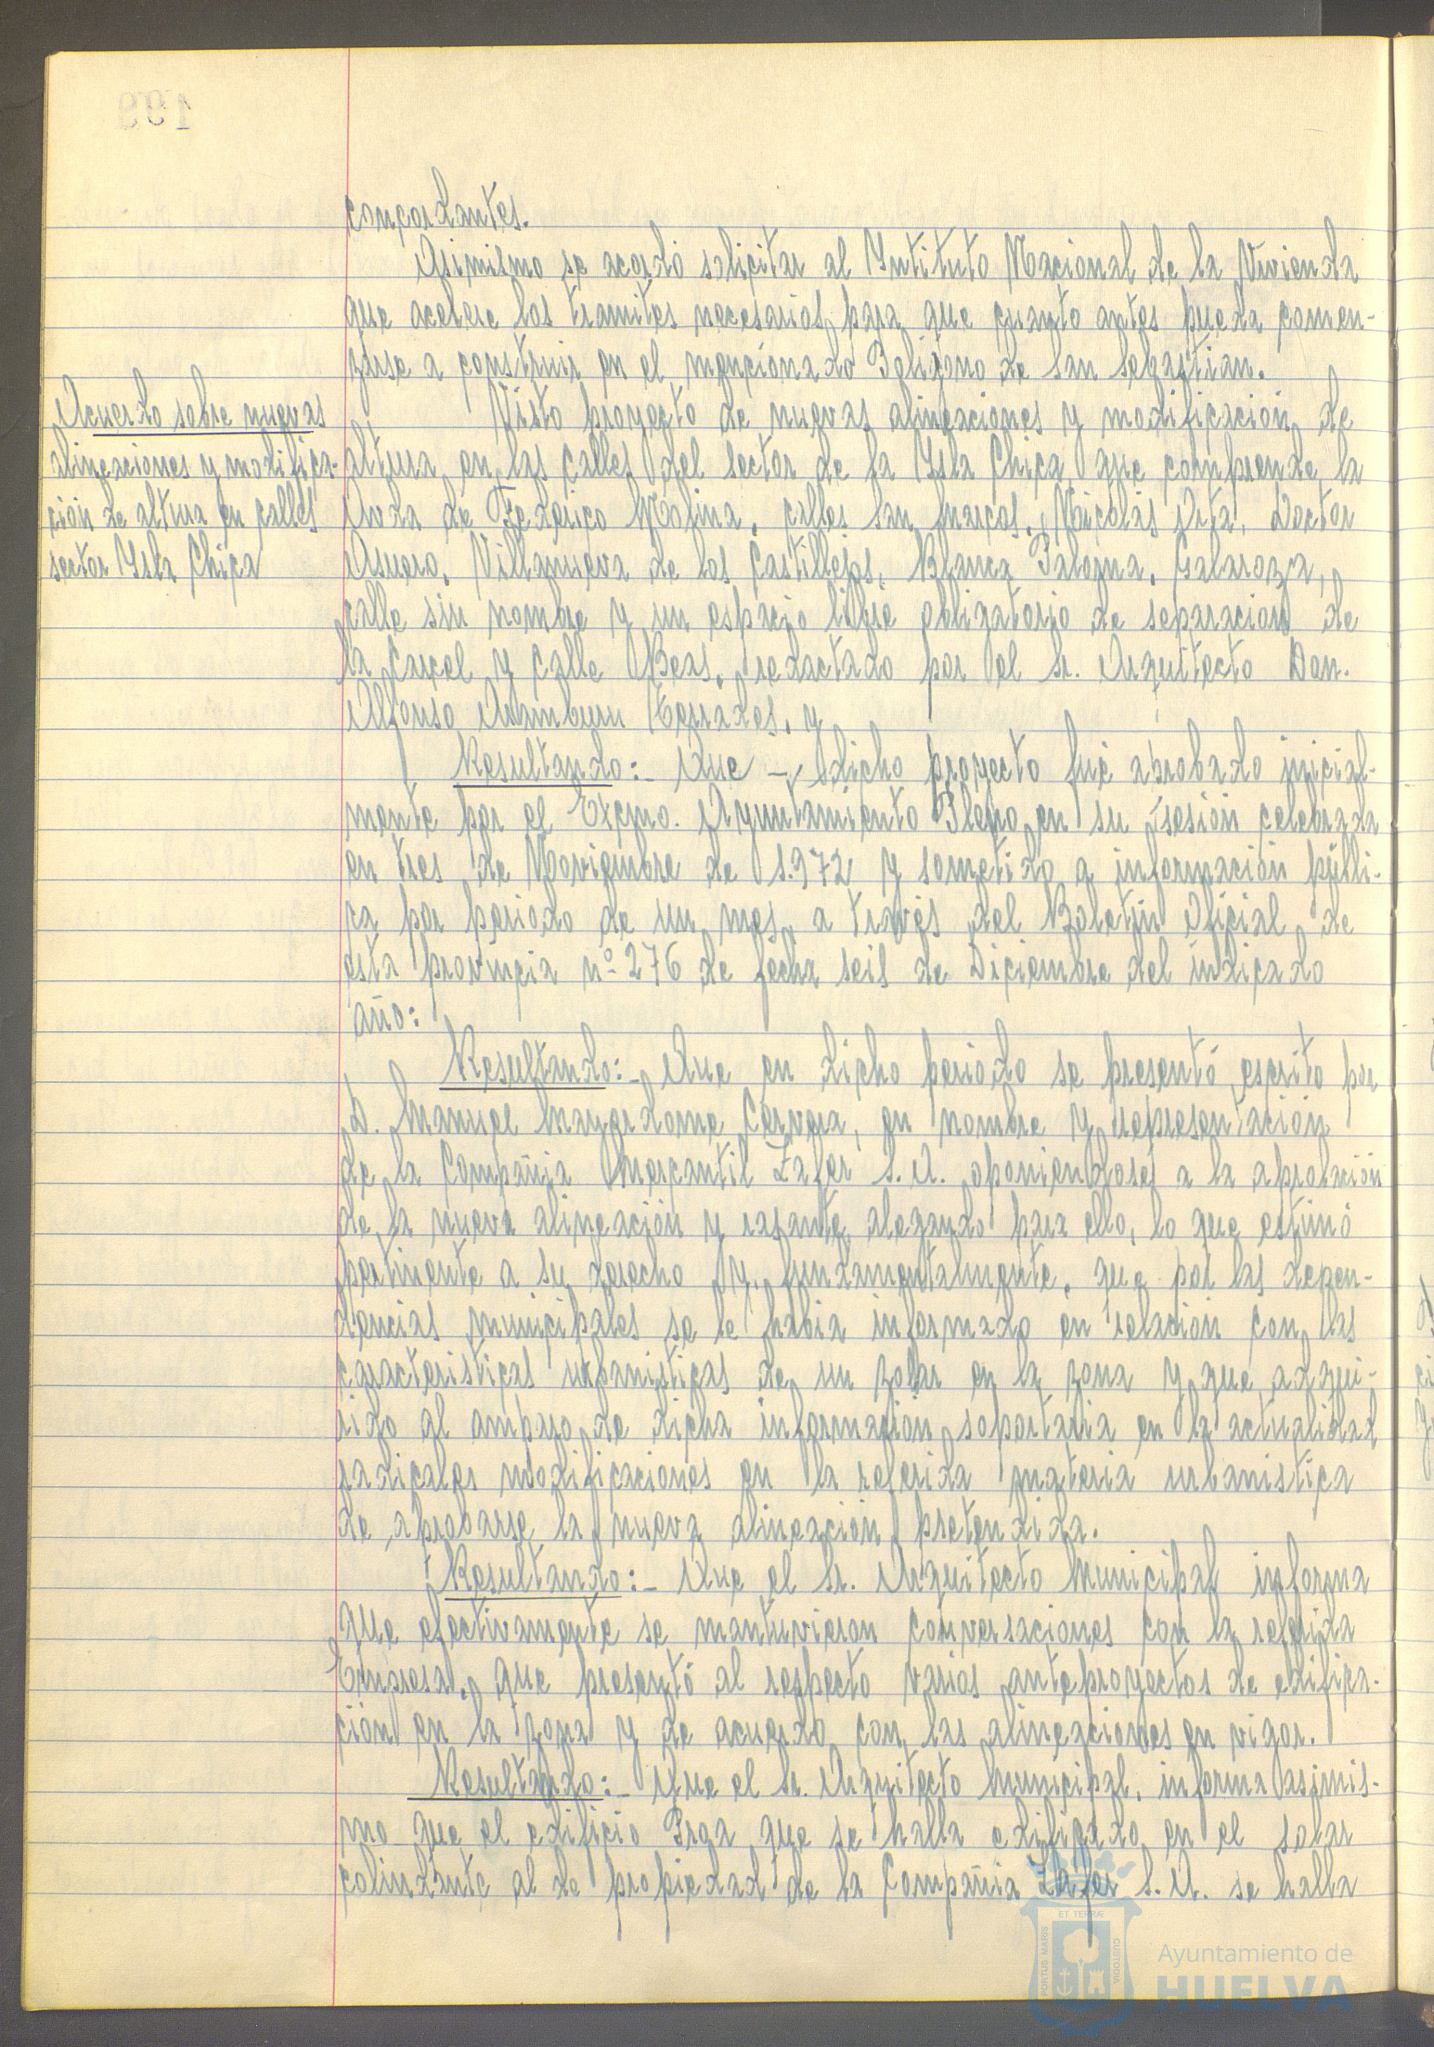 concordantes.
Asimismo se acordó solicitar al Yntituto Nacional de la Vivienda
que acelere los tramites necesarios para que cuanto antes pueda comen-
zarse a construir en el mencionado Poligono de San Sebastian.
Acuerdo sobre nuevas
alineaciones y modifica-
ción de altura en calles
sector Ysla Chica
Visto proyecto de nuevas alineaciones y modificación de
altura en las calles del sector de la Ysla Chica que comprende la
Avda de Federico Molina, calles San Marcos, Nicolás Orta, Doctor
Asuero, Villanueva de los Castillejos, Blanca Paloma, Galaroza,
calle sin nombre y un espacio libre obligatorio de separación de
la Carcel y Calle Beas, redactado por el Sr. Arquitecto Don.
Alfonso Aramburu Terrades, y
Resultando:- Que - dicho proyecto fué aprobado inicial-
mente por el Excmo. Ayuntamiento Pleno en su sesión celebrada
en tres de Noviembre de 1.972 y sometido a información públi-
ca por periodo de un mes, a través del Boletín Oficial de
esta provincia nº 276 de fecha seis de Diciembre del indicado
año:
Resultando:- Que en dicho periodo se presentó escrito por
D. Manuel Mayordomo Cervera, en nombre y representación
de la Compañia Mercantil Zafer S.A. oponiendose a la aprobación
de la nueva alineación y rasante alegando para ello, lo que estimó
pertinente a su derecho y, fundamentalmente, que por las depen-
dencias municipales se le habia informado en relación con las
caracteristicas urbanisticas de un solar en la zona y que adqui-
rido al amparo de dicha información soportaria en la actualidad
radicales modificaciones en la referida materia urbanistica
de aprobarse la nueva alineación pretendida.
Resultando:- Que el Sr. Arquitecto Municipal informa
que efectivamente se mantuvieron conversaciones con la referida
Empresa, que presentó al respecto varios anteproyectos de edifica-
ción en la zona y de acuerdo con las alineaciones en vigor.
Resultando:- Que el Sr. Arquitecto Municipal, informa asimis-
mo que el edificio Prga que se halla edificado en el solar
colindante al de propiedad de la Compañia Zafer S.A. se halla
PORTUS MARIS
ET TERRÆ
CUSTODIA
Ayuntamiento de
HUELVA